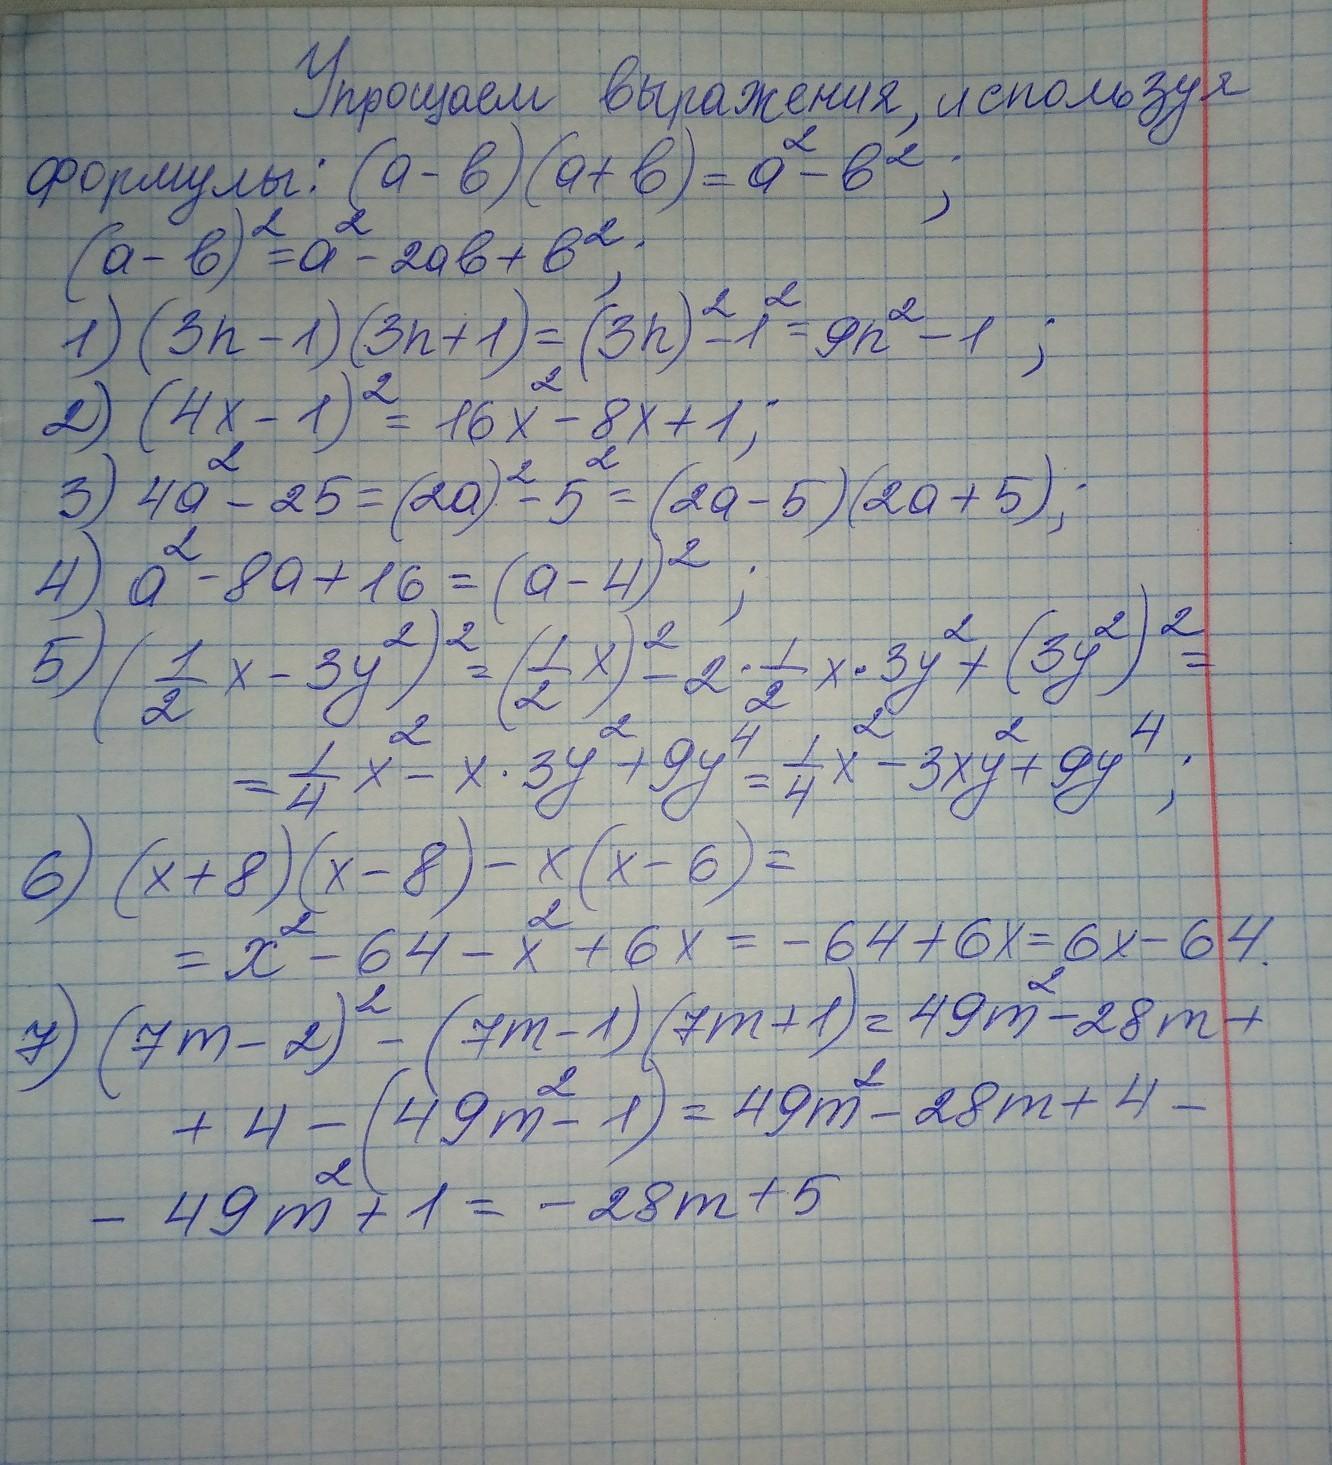 Упрощаем выражения, используя
формулы: (а-в)(а+в)=а²-в²;
(а-в)²=а²-2ав+в²;
1) (3n-1)(3n+1)=(3n)²-1²=9n²-1;
2) (4x-1)²=16x²-8x+1;
3) 4a²-25=(2a)²-5²=(2a-5)(2a+5);
4) a²-8a+16=(a-4)²;
5) (1/2 x-3y²)²=(1/2 x)²-2·1/2 x·3y²+(3y²)²=
=1/4 x²-x·3y²+9y⁴=1/4 x²-3xy²+9y⁴;
6) (x+8)(x-8)-x(x-6)=
=x²-64-x²+6x=-64+6x=6x-64.
7) (7m-2)²-(7m-1)(7m+1)=49m²-28m+
+4-(49m²-1)=49m²-28m+4-
-49m²+1=-28m+5